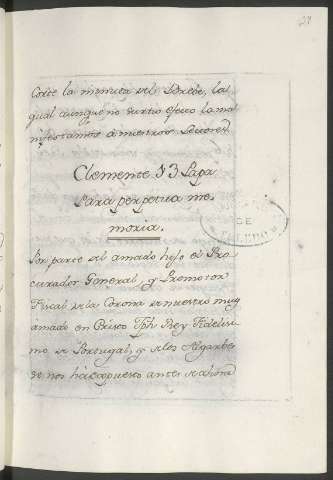 Corte la minuta del Breve, la
qual aunque no surtio efecto la ma
nifestamos à nuestros Lectores.
Clemente 13 Papa
Para perpetua me-
moria.
Por parte del amado hijo el Pro
curador General, y Promotor
Fiscal de la Corona de nuestro muy
amado en Cristo Jph Rey Fidelisi-
mo de Portugal, y de los Algarbes
se nos ha expuesto antes de ahora
DE